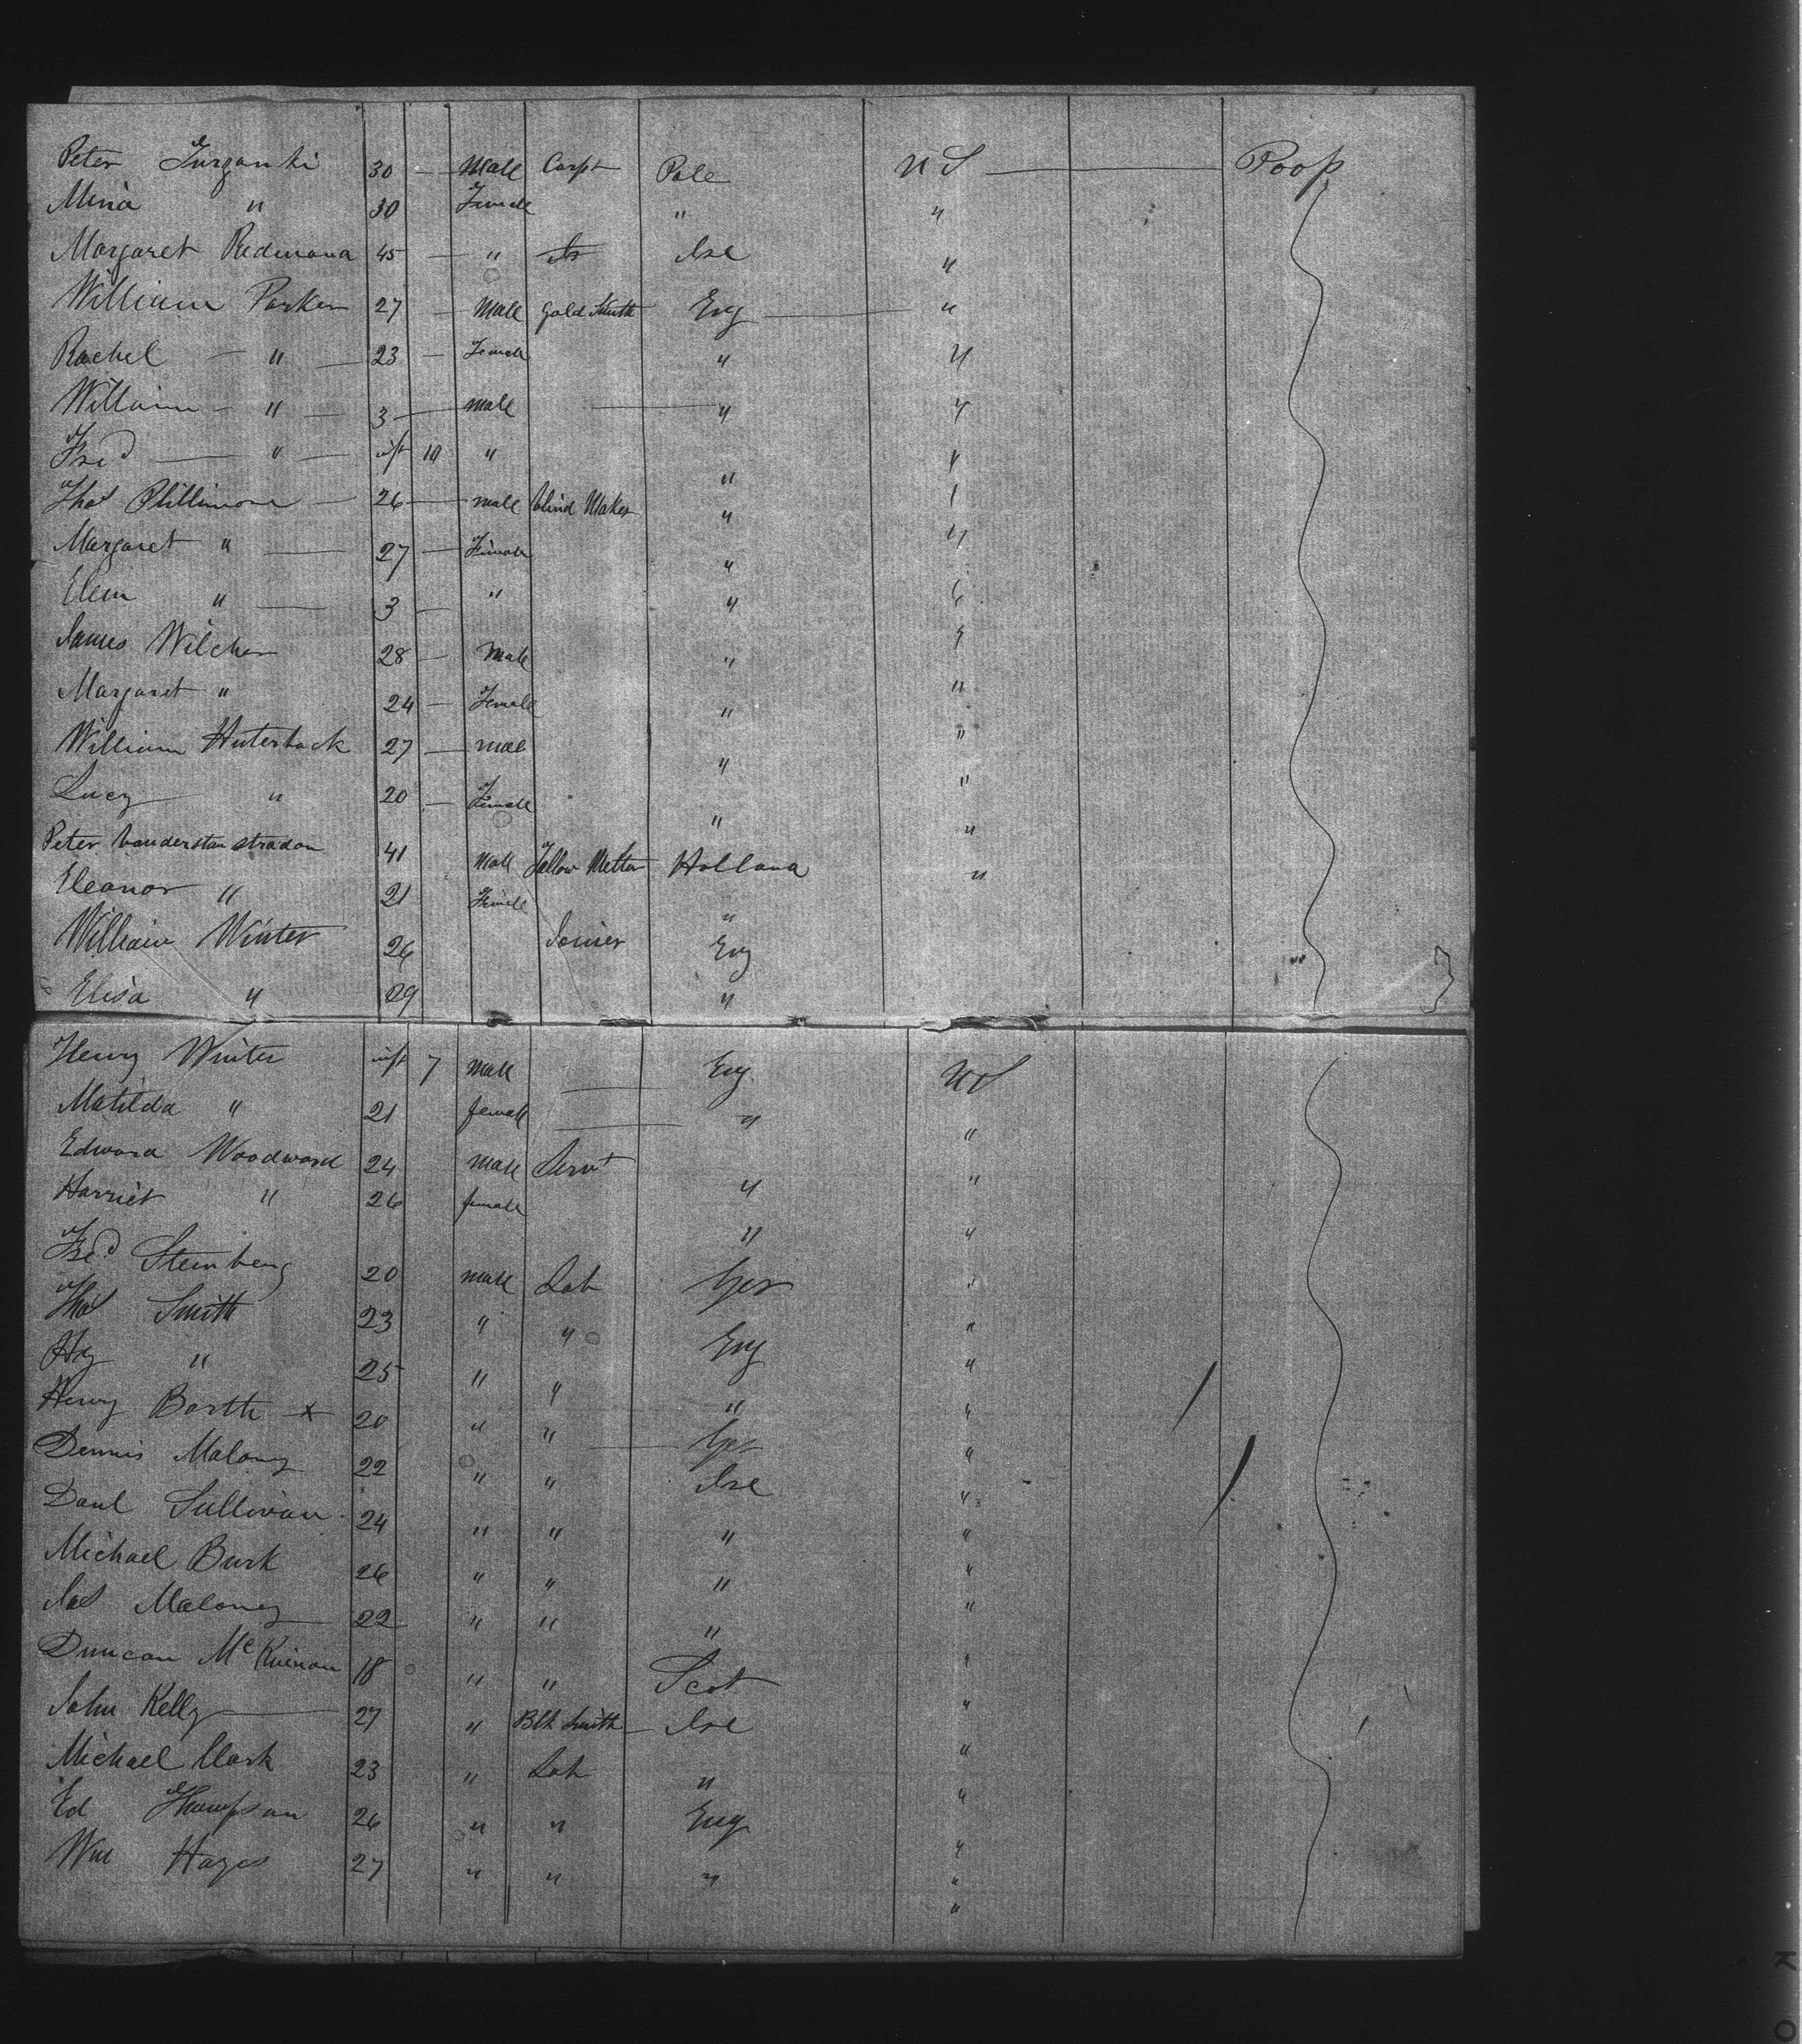 Peter Turganki 30 — Male Carpt Pole U S — Poop
Mina " 30 Female " "
Margaret Redmond 45 — " Ire "
William Parker 27 — Male Gold Smith Eng — "
Rachel — " — 23 — Female " "
William — " — 3 — male — " "
Fred — " — inft 10 " " "
Thos Phillimore — 26 — male Blind Maker " "
Margaret " — 27 — Female " "
Elen " — 3 — " " "
James Wilcher 28 — Male " "
Margaret " 24 — Female " "
William Huterback 27 — male " "
Lucy " 20 — Female " "
Peter Vanderstan stradon 41 Male Tallow Melter Holland "
Eleanor " 21 Female "
William Winter 26 Joiner Eng
Elisa " 29 "
Henry Winter inft 7 Male — Eng U S
Matilda " 21 female — " "
Edward Woodward 24 Male Servt " "
Harriet " 26 female " "
Fred Steinberg 20 male Lab Ger "
Thos Smith 23 " " Eng "
Hy " 25 " " " "
Henry Barth x 20 " " — Ger "
Dennis Malony 22 " " Ire "
Danl Sullivan 24 " " " "
Michael Burk 26 " " " "
Jas Maloney 22 " " " "
Duncan McKinnon 18 " " Scot "
John Kelly — 27 " Blk Smith — Ire "
Michael Clark 23 " Lab " "
Ed Thompson 26 " " Eng "
Wm Hayes 27 " " " "
"